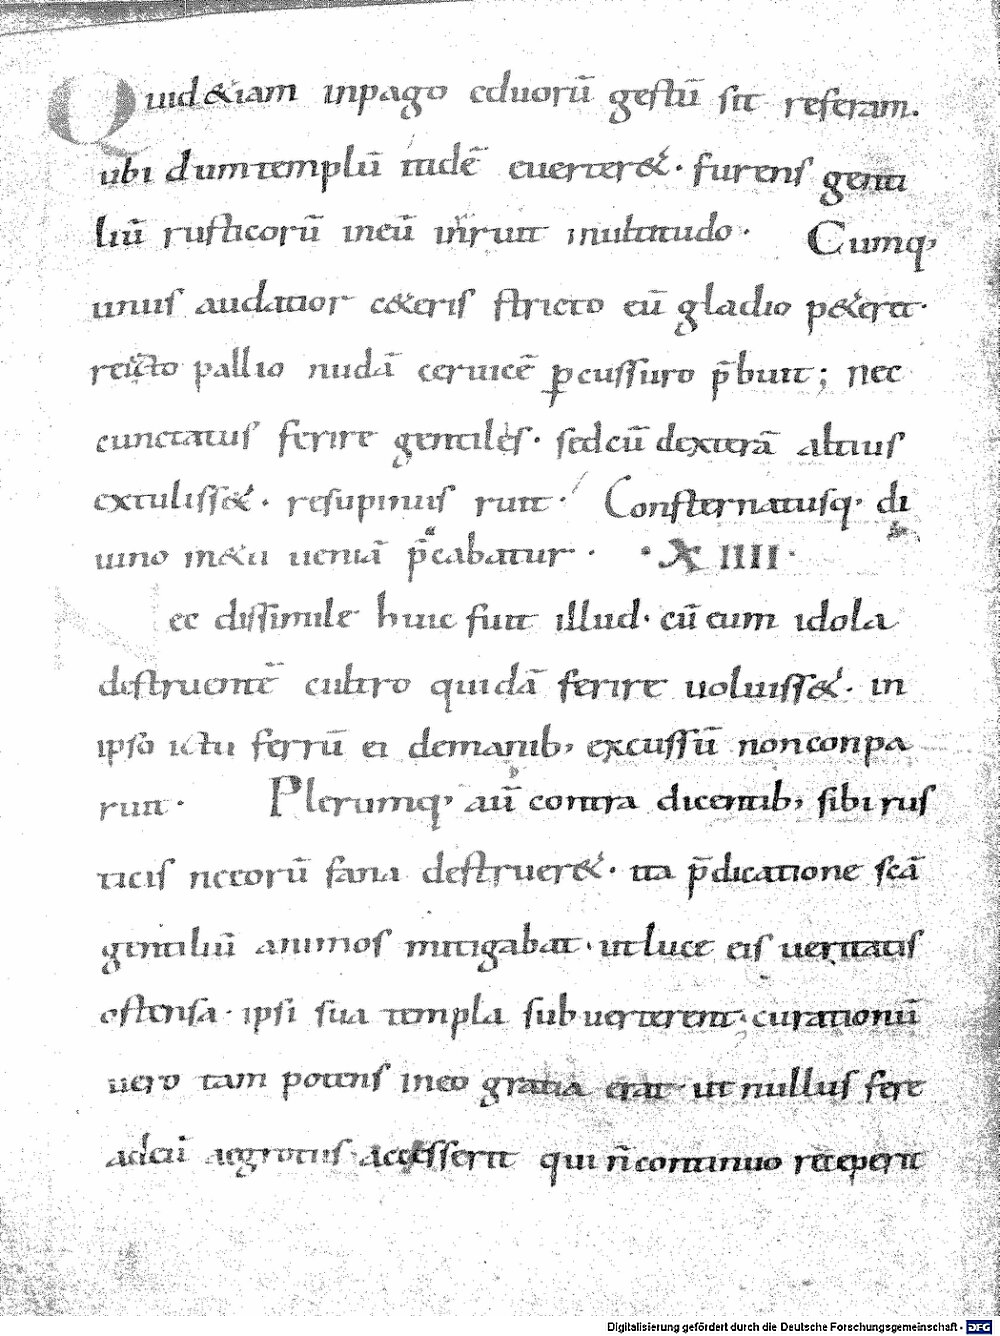 Quid &iam inpago eduorū gestū sit referam.
ubi dum templū itidē euerter&. furens genti
liū rusticorū ineū inruit multitudo. Cumq;
unus audatior c&eris stricto eū gladio p&erit.
reiecto pallio nudā ceruicē ꝑcussuro p̄buit; nec
cunctatus ferire gentiles. sedcū dexterā altius
extuliss&. resupinus ruit. Consternatusq; di
uino m&u ueniā p̄cabatur. XIIII.
Nec dissimile huic fuit illud. cū eum idola
destruentē cultro quidā ferire uoluiss&. in
ipso ictu ferrū ei demanib; excussū nonconpa
ruit. Plerumq; aūt contra dicentib; sibi rus
ticis neeorū fana destruer&. ita p̄dicatione scā
gentiliū animos mitigabat. ut luce eis ueritatis
ostensa. ipsi sua templa subuerterent; curationū
uero tam potens ineo gratia erat ut nullus fere
adeū aegrotus accesserit qui n̄continuo receperit
Digitalisierung gefördert durch die Deutsche Forschungsgemeinschaft - DFG